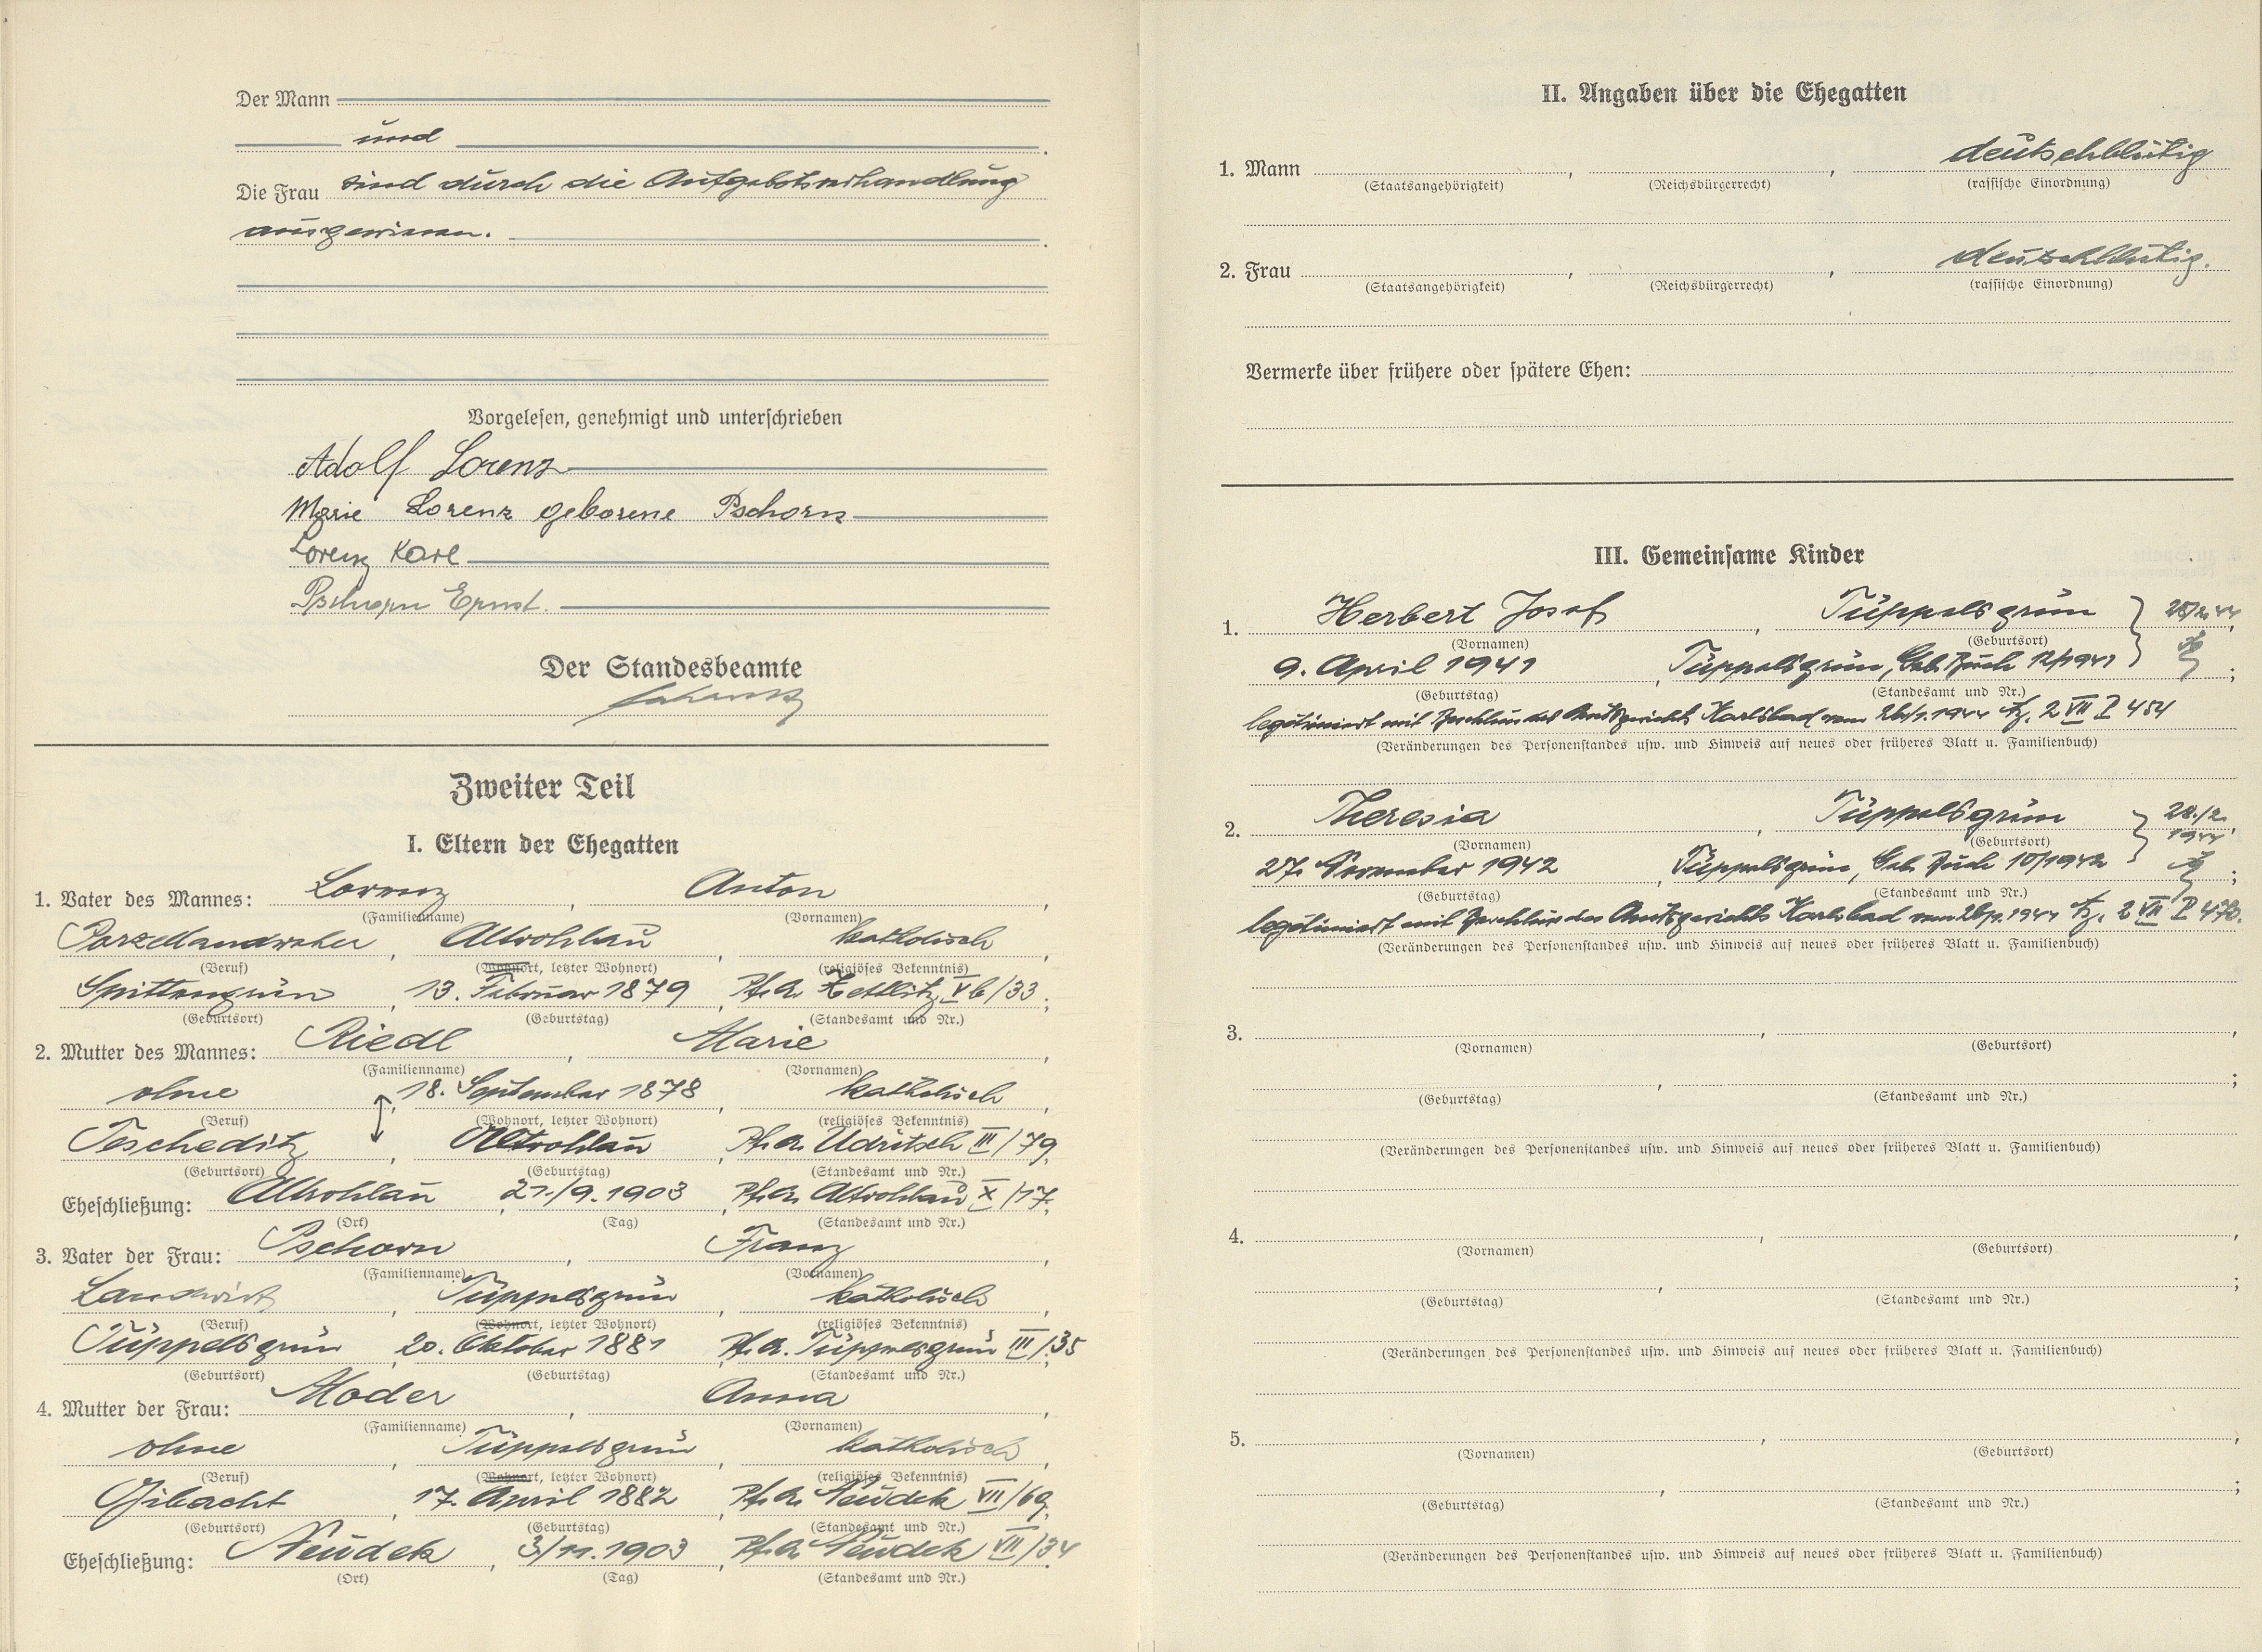 Der Mann
und
Die Frau sind durch die Aufgebotsverhandlung
ausgewiesen.
Vorgelesen, genehmigt und unterschrieben
Adolf Lorenz
Marie Lorenz geborene Pschorn
Lorenz Karl
Pschorn Ernst.
Der Standesbeamte
Zweiter Teil
I. Eltern der Ehegatten
1. Vater des Mannes: Lorenz, Anton,
(Familienname) (Vornamen)
Porzellandreher, Altrohlau, katholisch,
(Beruf) (Wohnort, letzter Wohnort) (religiöses Bekenntnis)
Spittengrün, 13. Februar 1879, Pf.A. Zettlitz V b/33;
(Geburtsort) (Geburtstag) (Standesamt und Nr.)
2. Mutter des Mannes: Riedl, Marie,
(Familienname) (Vornamen)
ohne, 18. September 1878, katholisch,
(Beruf) (Wohnort, letzter Wohnort) (religiöses Bekenntnis)
Tescheditz, Altrohlau, Pf.A. Udritsch III/79.
(Geburtsort) (Geburtstag) (Standesamt und Nr.)
Eheschließung: Altrohlau, 21./9.1903, Pf.A. Altrohlau X/17.
(Ort) (Tag) (Standesamt und Nr.)
3. Vater der Frau: Pschorn, Franz,
(Familienname) (Vornamen)
Landwirt, Tüppelsgrün, katholisch,
(Beruf) (Wohnort, letzter Wohnort) (religiöses Bekenntnis)
Tüppelsgrün, 20. Oktober 1881, Pf.A. Tüppelsgrün III/35
(Geburtsort) (Geburtstag) (Standesamt und Nr.)
4. Mutter der Frau: Moder, Anna,
(Familienname) (Vornamen)
ohne, Tüppelsgrün, katholisch,
(Beruf) (Wohnort, letzter Wohnort) (religiöses Bekenntnis)
Gibacht, 17. April 1882, Pf.A. Neudek VII/69.
(Geburtsort) (Geburtstag) (Standesamt und Nr.)
Eheschließung: Neudek, 3/11.1903, Pf.A. Neudek VII/34
(Ort) (Tag) (Standesamt und Nr.)
II. Angaben über die Ehegatten
1. Mann , , deutschblütig
(Staatsangehörigkeit) (Reichsbürgerrecht) (rassische Einordnung)
2. Frau , , deutschblütig.
(Staatsangehörigkeit) (Reichsbürgerrecht) (rassische Einordnung)
Vermerke über frühere oder spätere Ehen:
III. Gemeinsame Kinder
1. Herbert Josef, Tüppelsgrün
(Vornamen) (Geburtsort)
9. April 1941, Tüppelsgrün, Geb. Buch 12/1941;
(Geburtstag) (Standesamt und Nr.)
legitimiert mit Beschluss des Amtsgerichts Karlsbad vom 26/1.1944 Az. 2 VII P 454
(Veränderungen des Personenstandes usw. und Hinweis auf neues oder früheres Blatt u. Familienbuch)
2. Theresia, Tüppelsgrün 28./2. 1944
(Vornamen) (Geburtsort)
27. November 1942, Tüppelsgrün, Geb. Buch 10/1942;
(Geburtstag) (Standesamt und Nr.)
legitimiert mit Beschluss des Amtsgerichts Karlsbad vom 26/1.1944 Az. 2 VII P 470.
(Veränderungen des Personenstandes usw. und Hinweis auf neues oder früheres Blatt u. Familienbuch)
3. , ,
(Vornamen) (Geburtsort)
, ;
(Geburtstag) (Standesamt und Nr.)
(Veränderungen des Personenstandes usw. und Hinweis auf neues oder früheres Blatt u. Familienbuch)
4. , ,
(Vornamen) (Geburtsort)
, ;
(Geburtstag) (Standesamt und Nr.)
(Veränderungen des Personenstandes usw. und Hinweis auf neues oder früheres Blatt u. Familienbuch)
5. , ,
(Vornamen) (Geburtsort)
, ;
(Geburtstag) (Standesamt und Nr.)
(Veränderungen des Personenstandes usw. und Hinweis auf neues oder früheres Blatt u. Familienbuch)